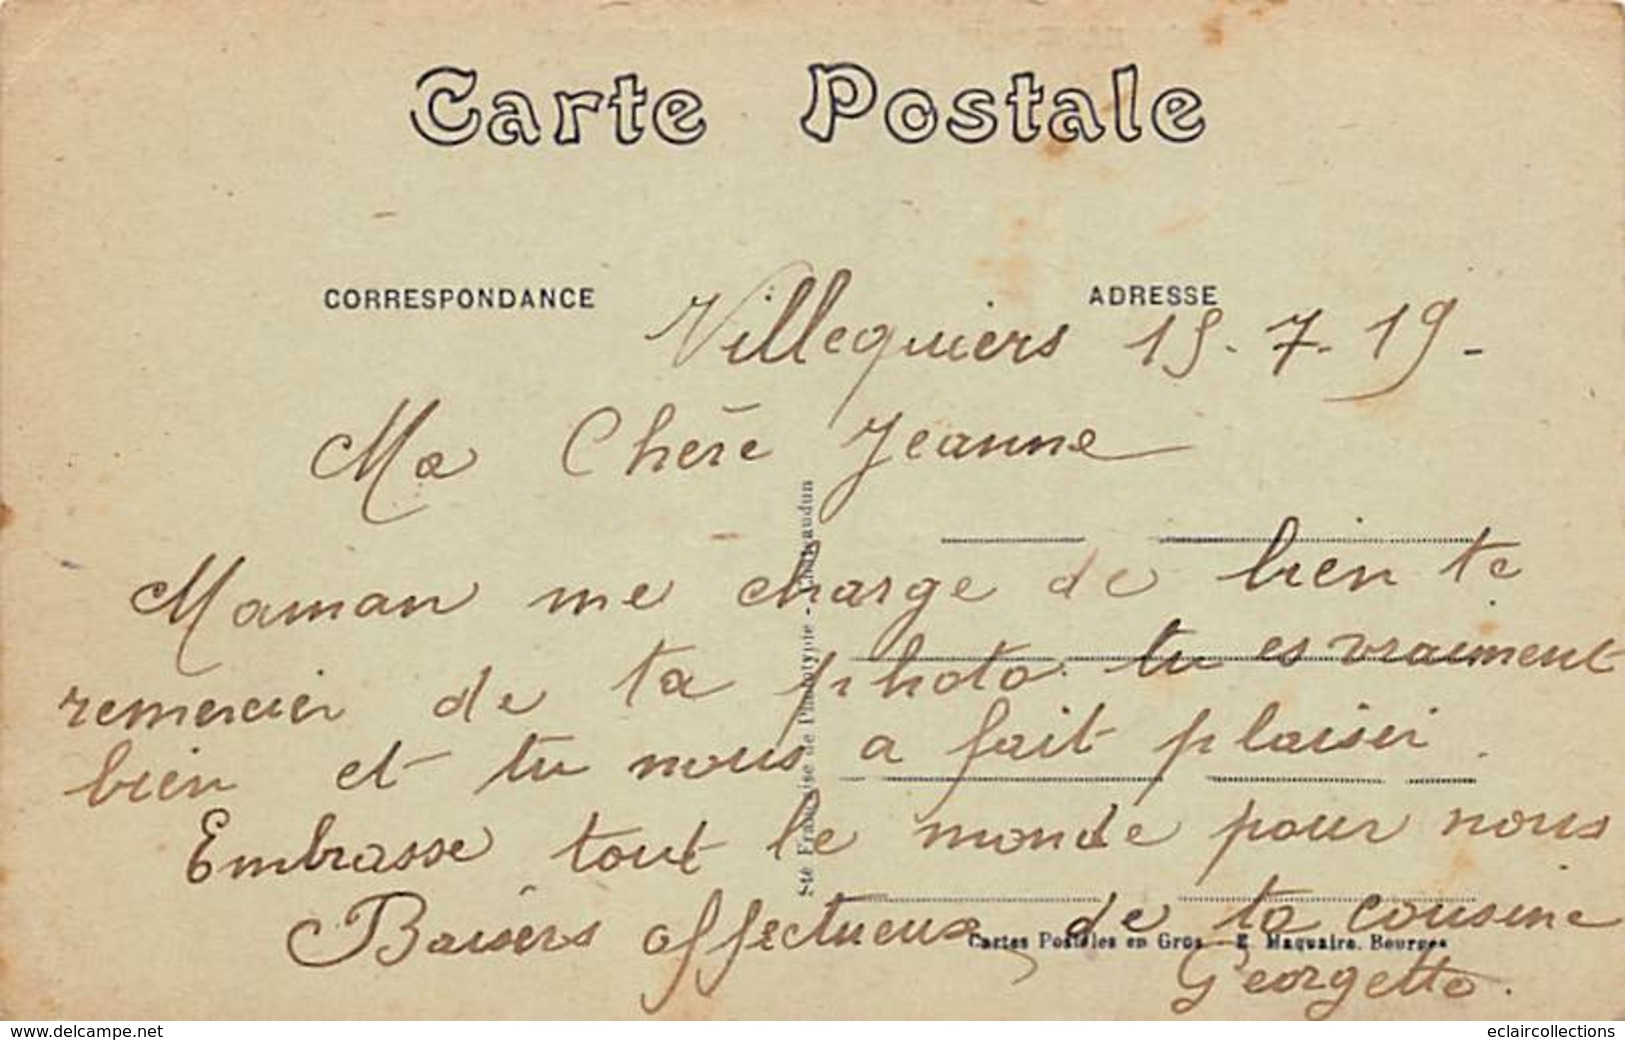 Carte Postale
CORRESPONDANCE
ADRESSE
Villequiers 15-7-19-
Ma Chère Jeanne
Maman me charge de bien te
remercier de ta photo. tu es vraiment
bien et tu nous a fait plaisir.
Embrasse tout le monde pour nous
Baisers affectueux de ta cousine
Georgette.
Sté Française de Phototypie - Châteaudun
Cartes Postales en Gros E. Maquaire. Bourges
www.delcampe.net
eclaircollections